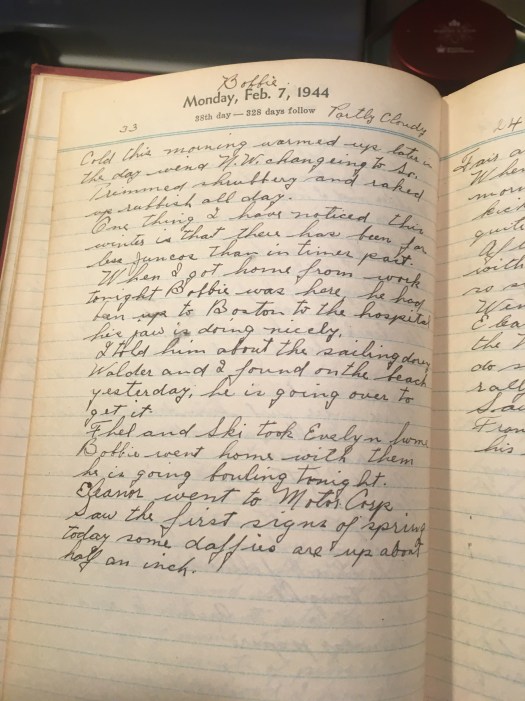 Bobbie.
Monday, Feb. 7, 1944
38th day — 328 days follow
33
Partly Cloudy
Cold this morning warmed up later in
the day wind N.W. changeing to So.
Trimmed shrubbery and raked
up rubbish all day.
One thing I have noticed this
winter is that there has been far
less juncos than in times past.
When I got home from work
tonight Bobbie was here, he had
been up to Boston to the hospital
his jaw is doing nicely.
I told him about the sailing dory
Walder and I found on the beach
yesterday, he is going over to
get it.
Ethel and Ski took Evelyn home
Bobbie went home with them
he is going bouling tonight.
Eleanor went to Motor Corp
Saw the first signs of spring
today some daffies are up about
half an inch.
24
Fair
When
more
quite
with
so
Wen
Elea
the
do
rall
from
his